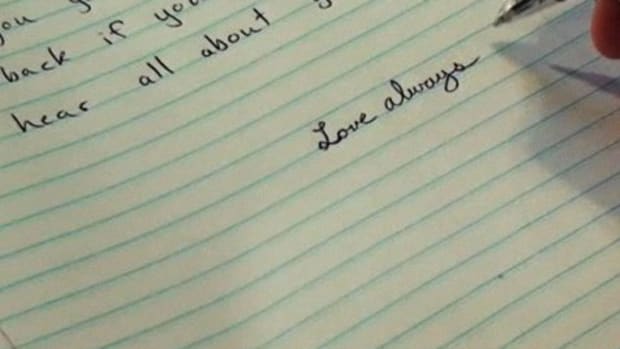 you
back if you
hear all about
Love always